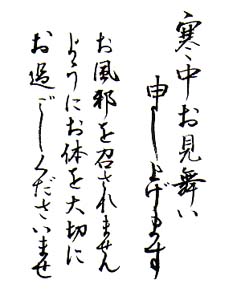 寒中お見舞い
申し上げます
お風邪を召されません
ようにお体を大切に
お過ごしくださいませ